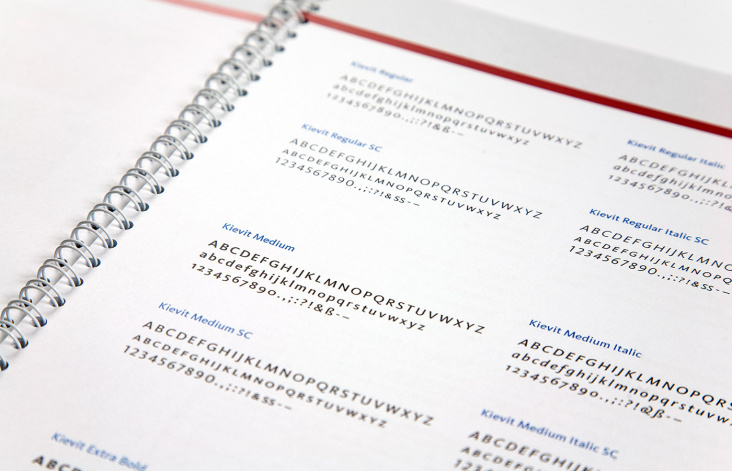 Kievit Regular
ABCDEFGHIJKLMNOPQRSTUVWXYZ
abcdefghijklmnopqrstuvwxyz
1234567890.,;:?!&ß-–
Kievit Regular SC
ABCDEFGHIJKLMNOPQRSTUVWXYZ
ABCDEFGHIJKLMNOPQRSTUVWXYZ
1234567890.,;:?!&SS-–
Kievit Medium
ABCDEFGHIJKLMNOPQRSTUVWXYZ
abcdefghijklmnopqrstuvwxyz
1234567890.,;:?!&ß-–
Kievit Medium SC
ABCDEFGHIJKLMNOPQRSTUVWXYZ
ABCDEFGHIJKLMNOPQRSTUVWXYZ
1234567890.,;:?!&SS-–
Kievit Extra Bold
ABCDEFGHIJKL
Kievit Regular Italic
ABCDEFGHIJK
abcdefghijklmno
1234567890.,;:?!
Kievit Regular Italic SC
ABCDEFGHIJKLMNO
ABCDEFGHIJKLMNOPQ
1234567890.,;:?!&SS-–
Kievit Medium Italic
ABCDEFGHIJKLMNOPQR
abcdefghijklmnopqrstuvw
1234567890.,;:?!&ß-–
Kievit Medium Italic SC
ABCDEFGHIJKLMNOPQ
ABCDEFGHIJKLMN